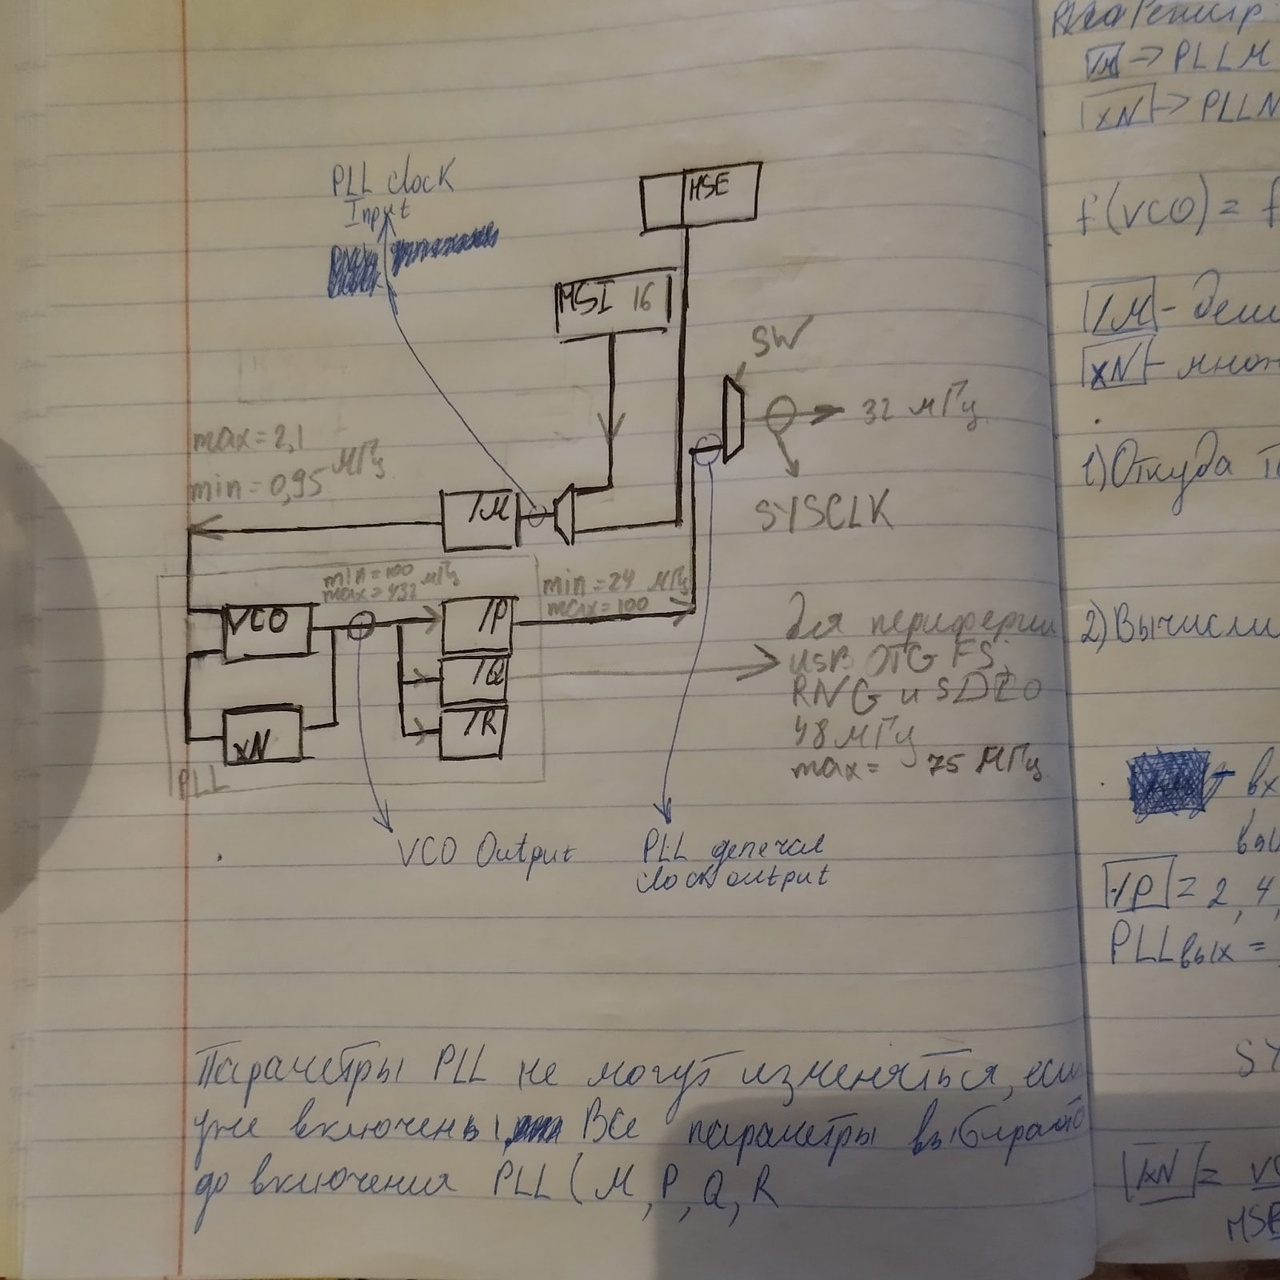 PLL clock
Input
HSE
MSI 16
SW
32 мГц
SYSCLK
max=2,1
min=0,95 мГц
/M
min=100
max=432 мГц
min=24 мГц
max=100
VCO
/P
/Q
/R
xN
PLL
Для периферии
USB OTG FS,
RNG и SDIO
48 мГц
max= 75 мГц
VCO Output
PLL general
clock output
Параметры PLL не могут изменяться, если
уже включены Все параметры выбирают
до включения PLL (M, P, Q, R
/M -> PLLM
xN -> PLLN
f(VCO) = f
/M -
xN -
1) Откуда
2) Вычисли
вх
/P = 2, 4,
PLLвых =
SY
xN =